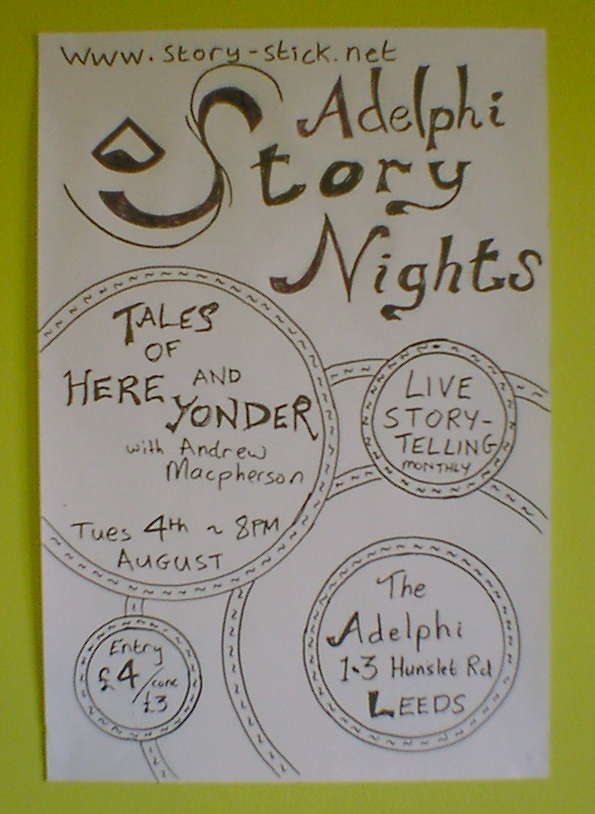 www.story-stick.net
Adelphi
Story
Nights
TALES
OF
HERE AND
YONDER
with Andrew
Macpherson
Tues 4th ~ 8PM
AUGUST
LIVE
STORY-
TELLING
MONTHLY
The
Adelphi
1-3 Hunslet Rd
LEEDS
Entry
£4/conc
£3